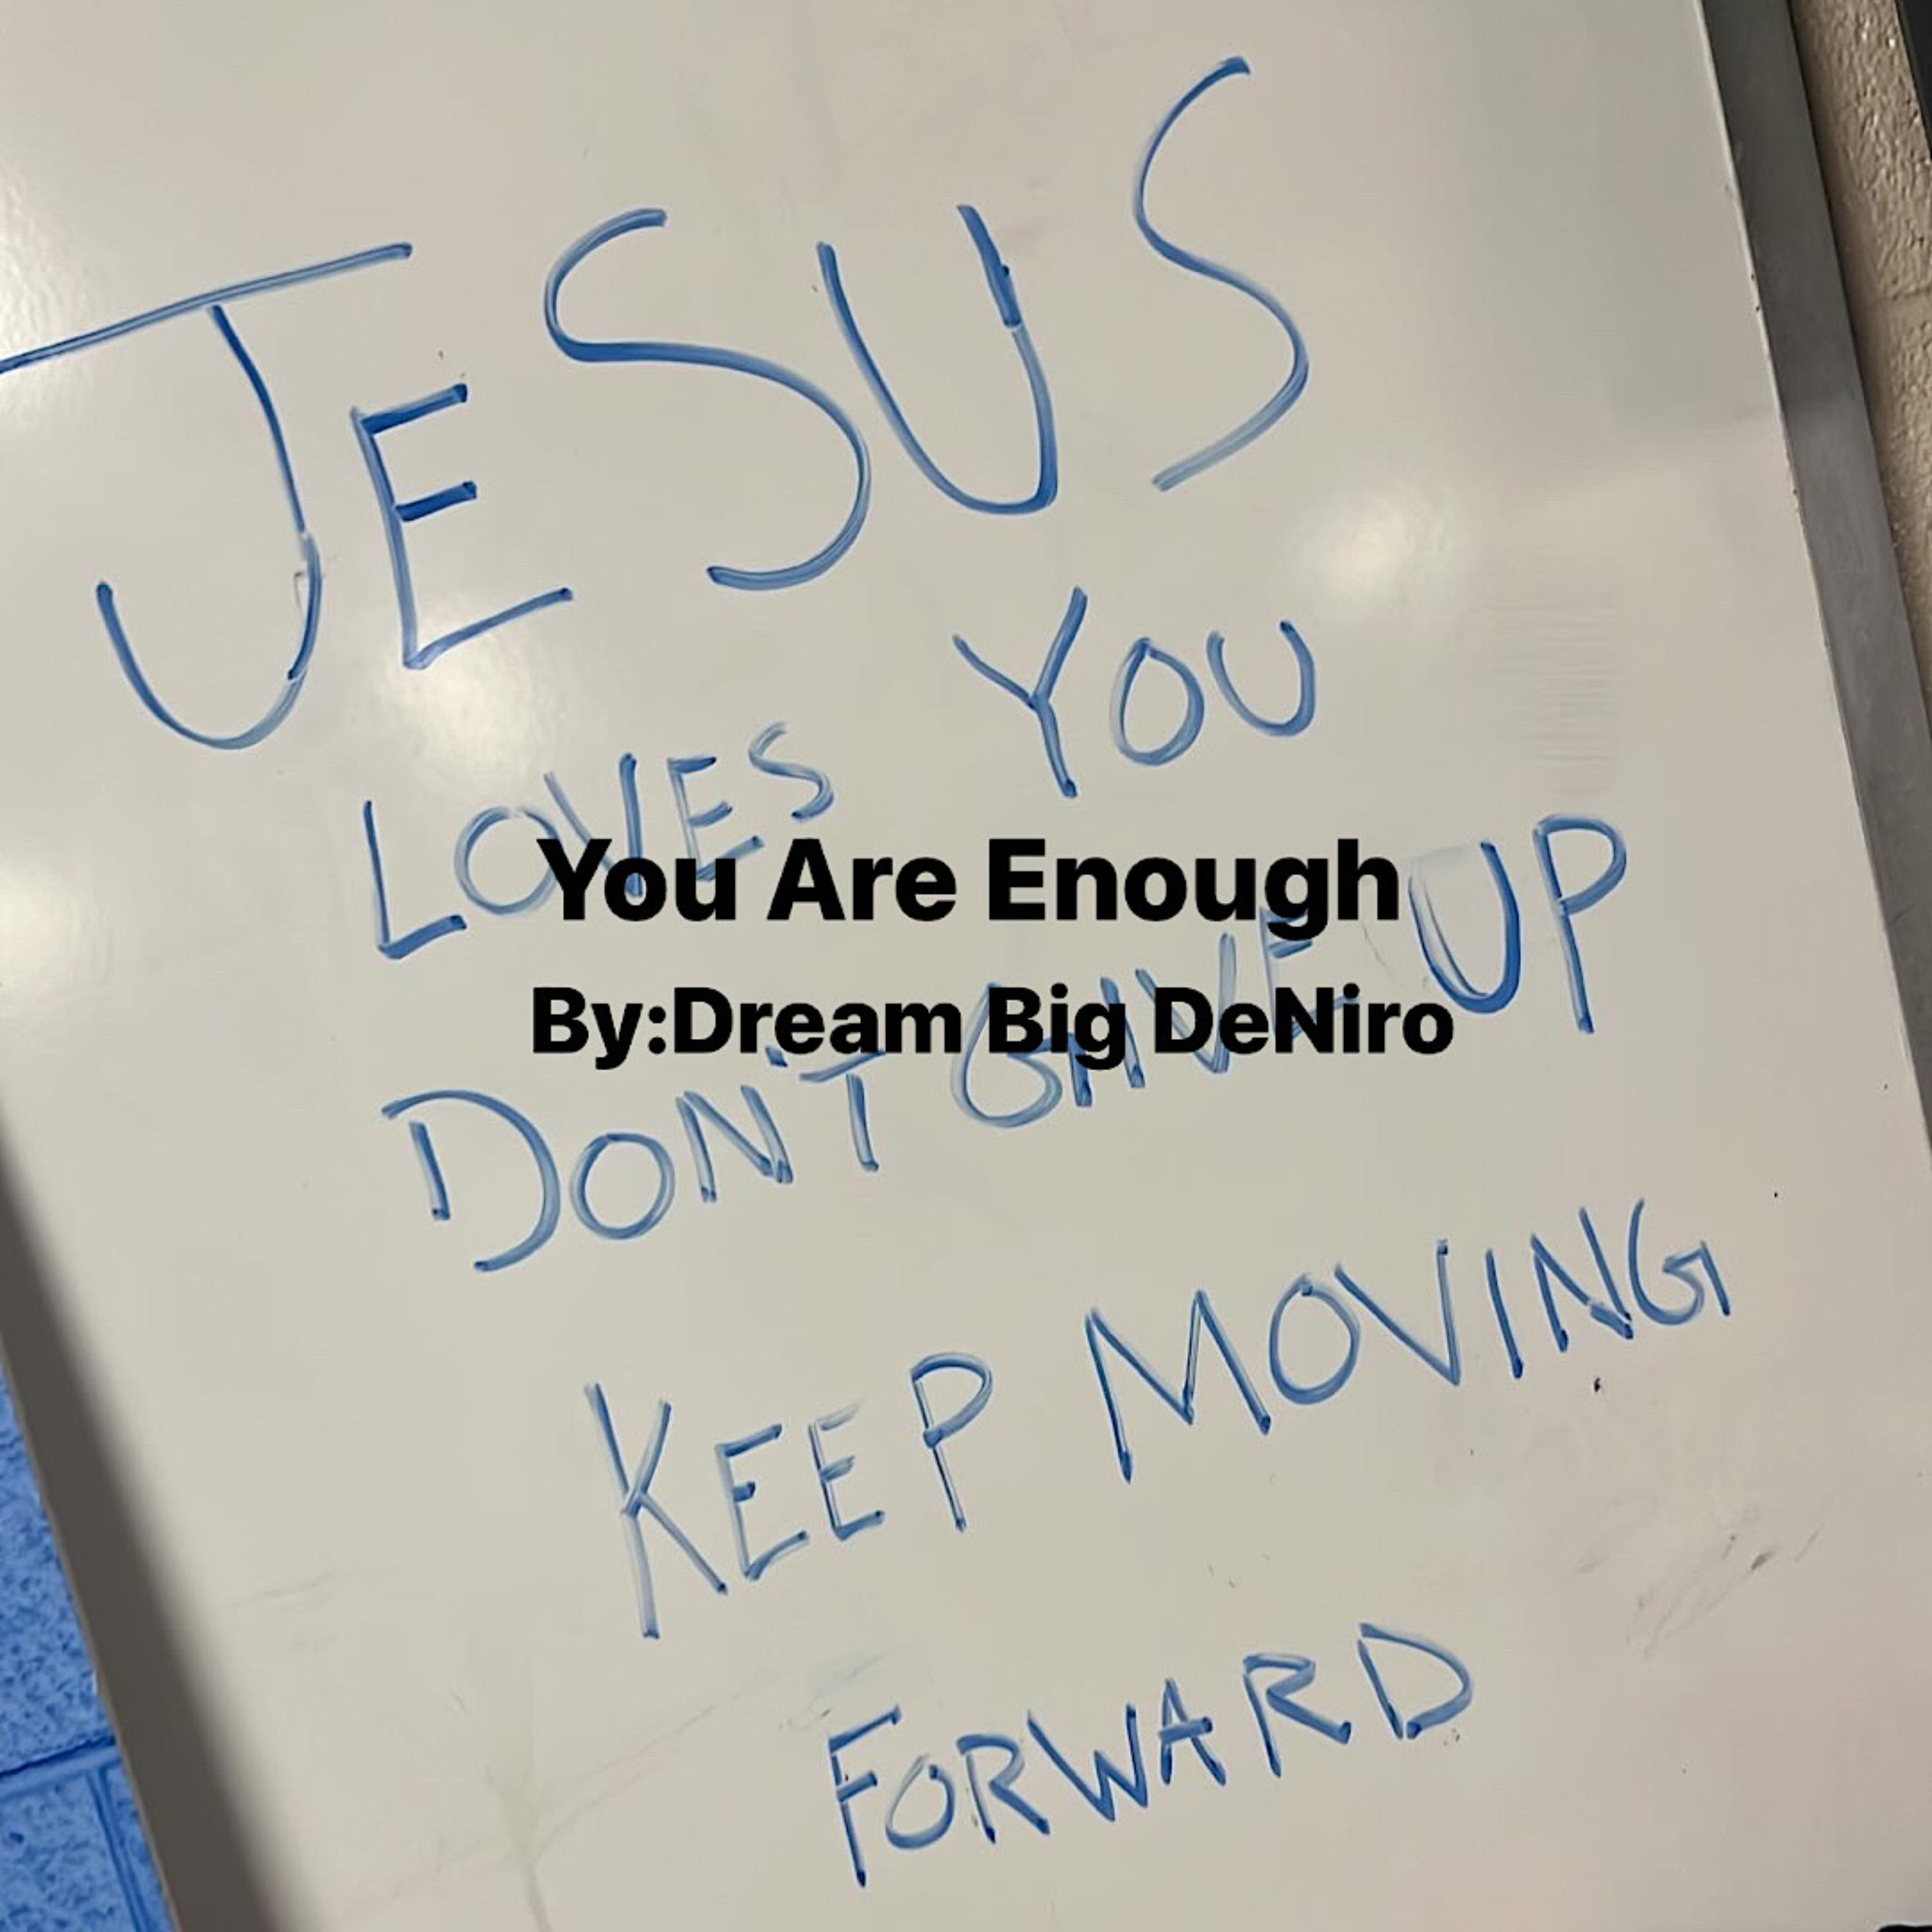 JESUS
LOVES YOU
You Are Enough
By:Dream Big DeNiro
DON'T GIVE UP
KEEP MOVING
FORWARD